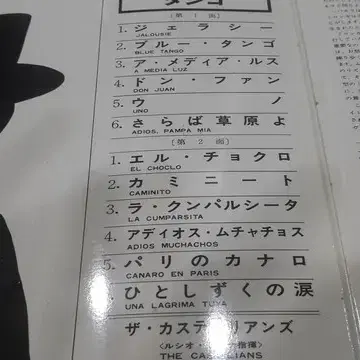 タンゴ
〔第1面〕
1. ジェラシー
JALOUSIE
2. ブルー・タンゴ
BLUE TANGO
3. ア・メディア・ルス
A MEDIA LUZ
4. ドン・ファン
DON JUAN
5. ウノ
UNO
6. さらば草原よ
ADIOS, PAMPA MIA
〔第2面〕
1. エル・チョクロ
EL CHOCLO
2. カミニート
CAMINITO
3. ラ・クンパルシータ
LA CUMPARSITA
4. アディオス・ムチャチョス
ADIOS MUCHACHOS
5. パリのカナロ
CANARO EN PARIS
ひとしずくの涙
UNA LAGRIMA TUYA
ザ・カスティリアンズ
THE CASTILIANS